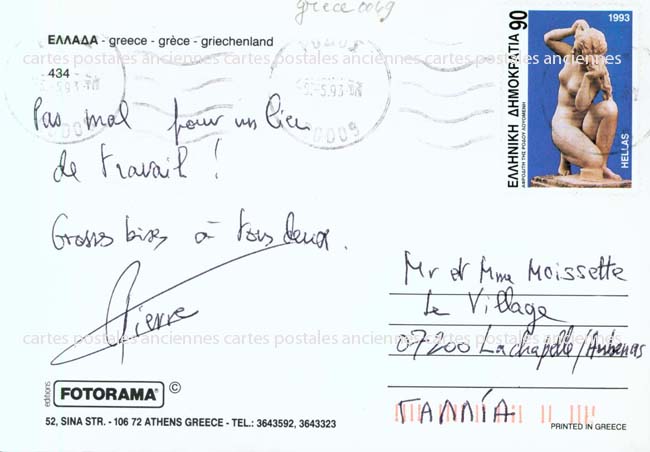 grece 0069
ΕΛΛΑΔΑ - greece - grèce - griechenland
434
cartes postales anciennes cartes postales anciennes cartes postales anciennes
-5.93
0009
90
1993
ΕΛΛΗΝΙΚΗ ΔΗΜΟΚΡΑΤΙΑ
ΑΦΡΟΔΙΤΗ ΤΗΣ ΡΟΔΟΥ ΛΟΥΟΜΕΝΗ
HELLAS
Pas mal pour un lieu
de travail !
Grosses bises à tous deux.
Pierre
Mr et Mme Moissette
Le Village
cartes postales anciennes cartes postales anciennes cartes postales anciennes
07200 Lachapelle/Aubenas
ΓΑΛΛΊΑ
editions FOTORAMA® ©
52, SINA STR. - 106 72 ATHENS GREECE - TEL.: 3643592, 3643323
PRINTED IN GREECE